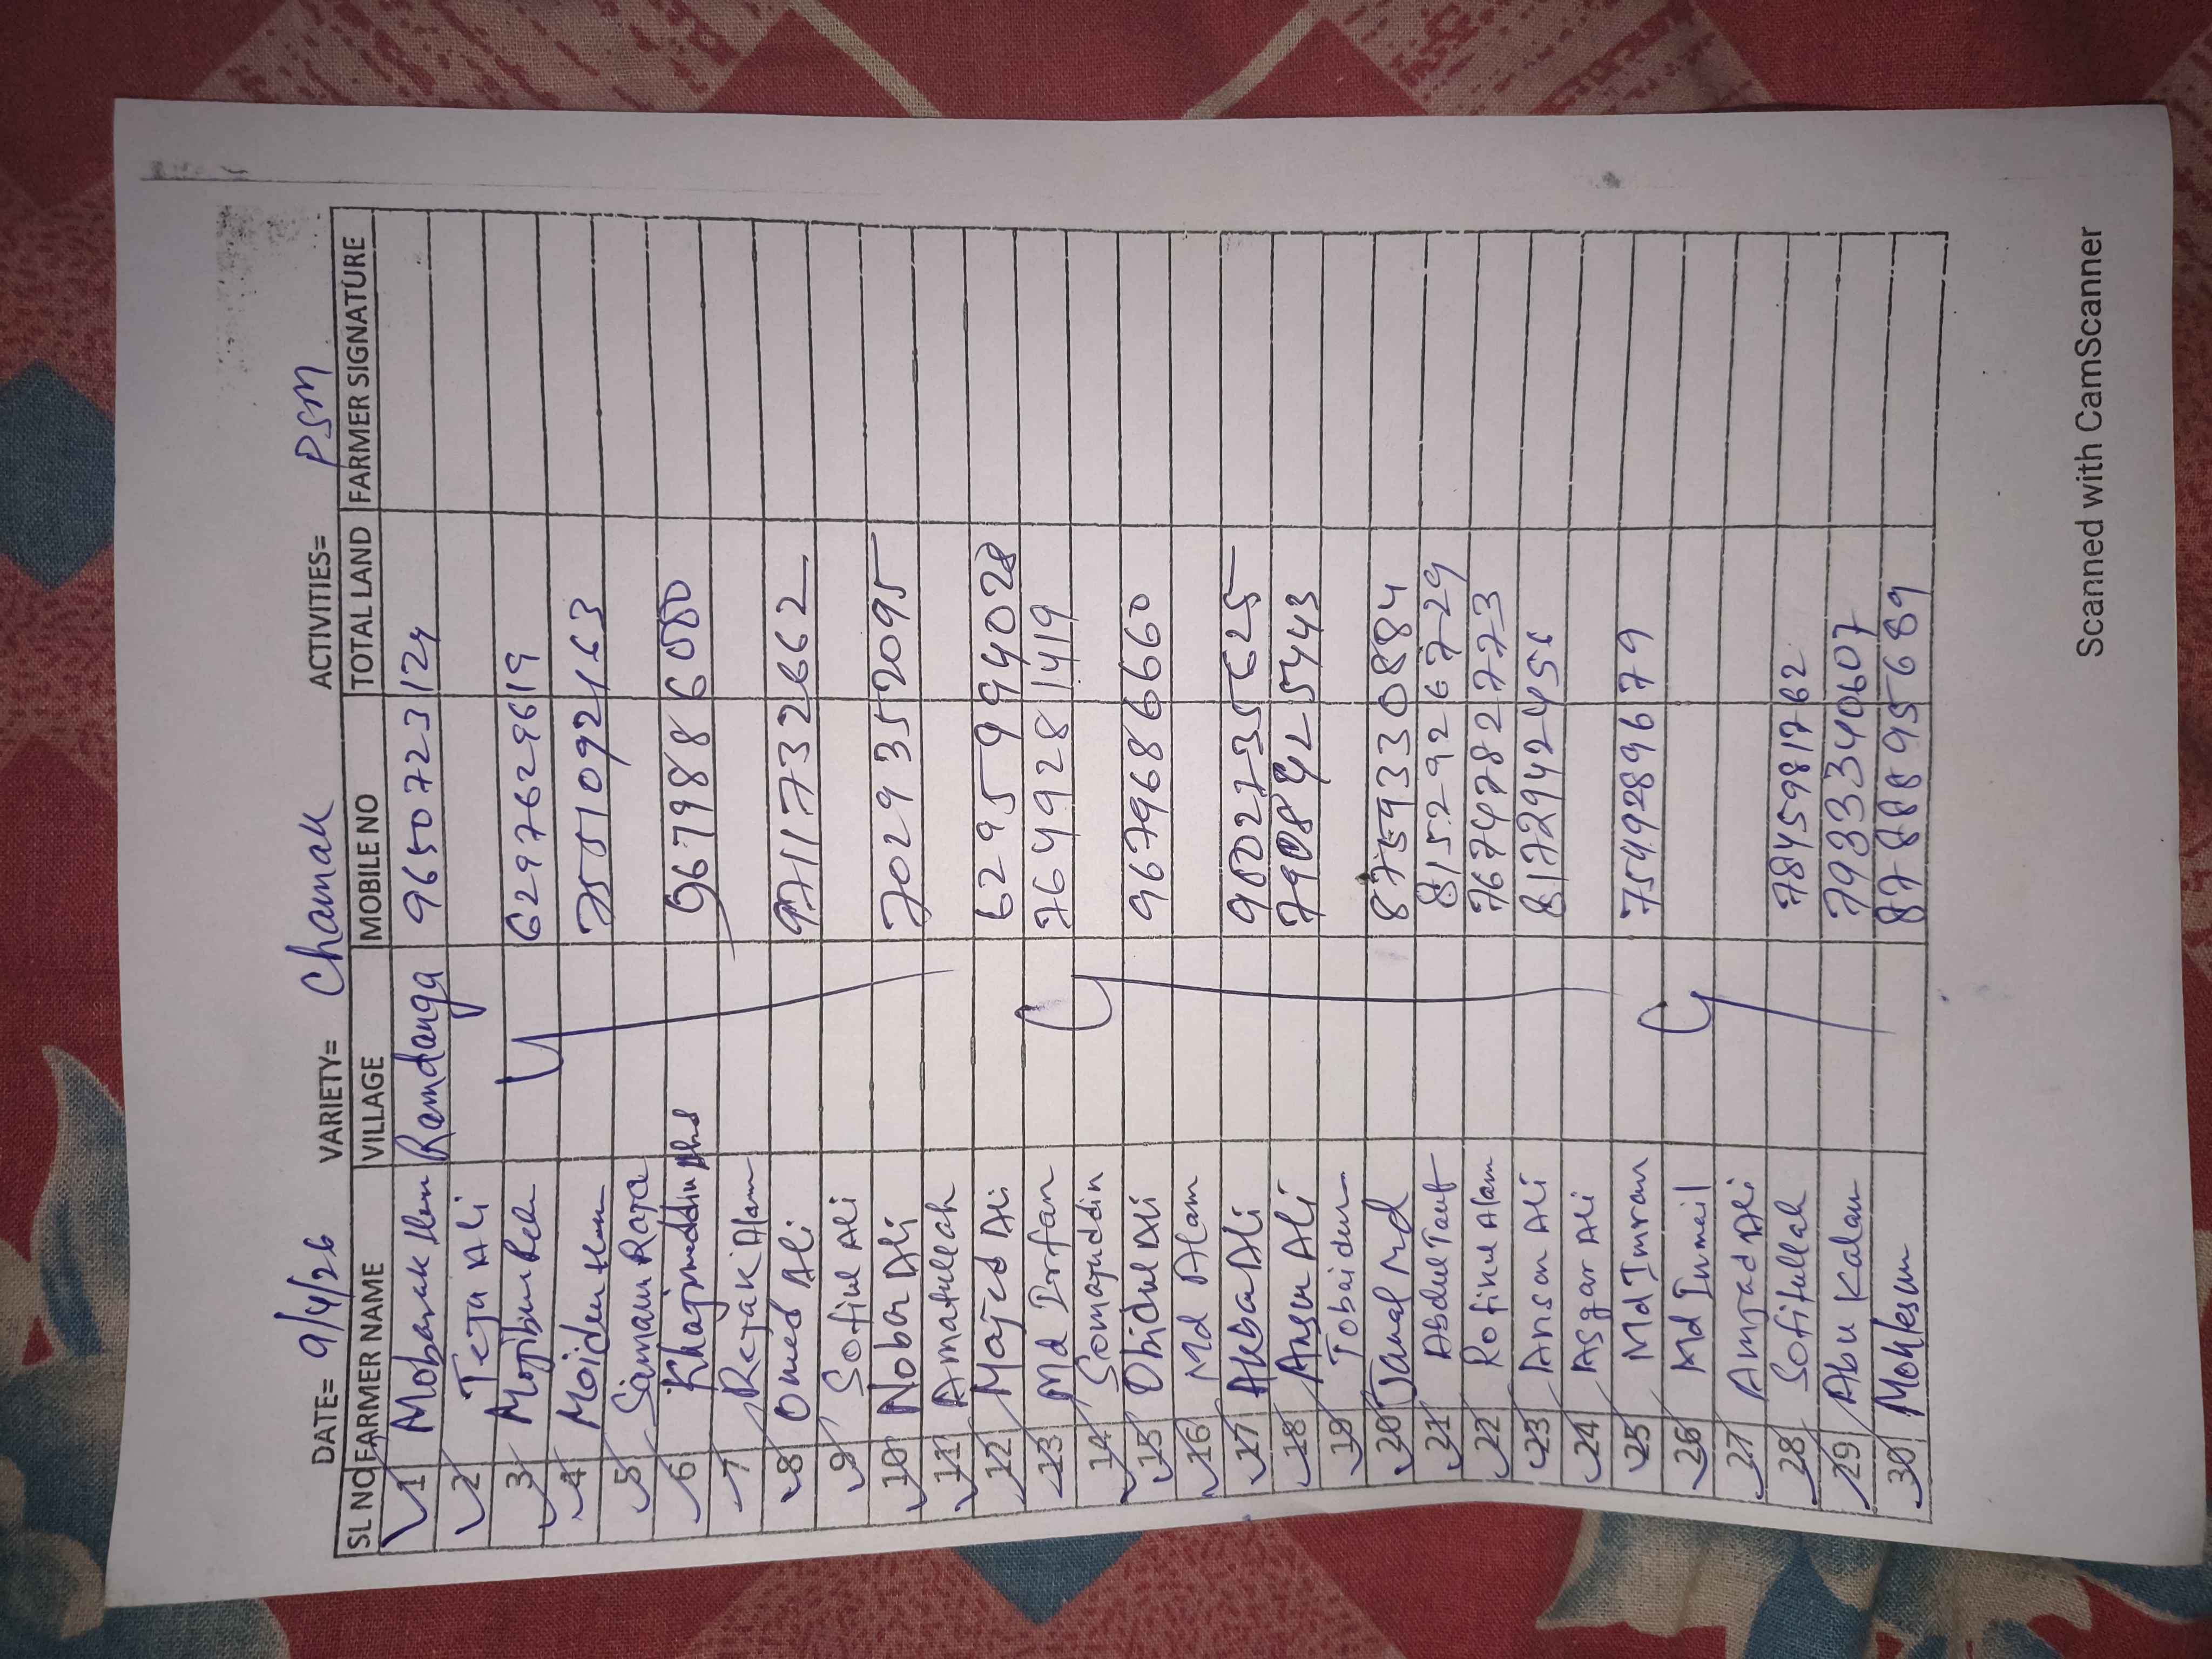 DATE= 9/4/26 VARIETY= Chamak ACTIVITIES= PSM
SL NO FARMER NAME VILLAGE MOBILE NO TOTAL LAND FARMER SIGNATURE
1 Mobarak Ramdanga 9650723124
2 Teja Ali
3 Mojibur 6297629619
4 Moiden 7551092163
5 Samaun Raja
6 Khajimuddin 9679886000
7 Rejak Alam
8 Omed Ali 9711732662
9 Sofiul Ali
10 Nobar Ali 7029352095
11 Amatullah
12 Majed Ali 6295994028
13 Md Irfan 7649281419
14 Somayuddin
15 Obidul Ali 9679686660
16 Md Alam
17 Akbar Ali
18 Ansar Ali
19 Tobaidur
20 Jamal Md 8759330884
21 Abdul Tauf 8152926729
22 Rofikul Alam 7674782773
23 Ansar Ali 8172942456
24 Asgar Ali
25 Md Imran 7549289679
26 Md Ismail
27 Amjad Ali
28 Sofitullah 7845981762
29 Abu Kalam 7933340607
30 Mohksin 8788895689
Scanned with CamScanner